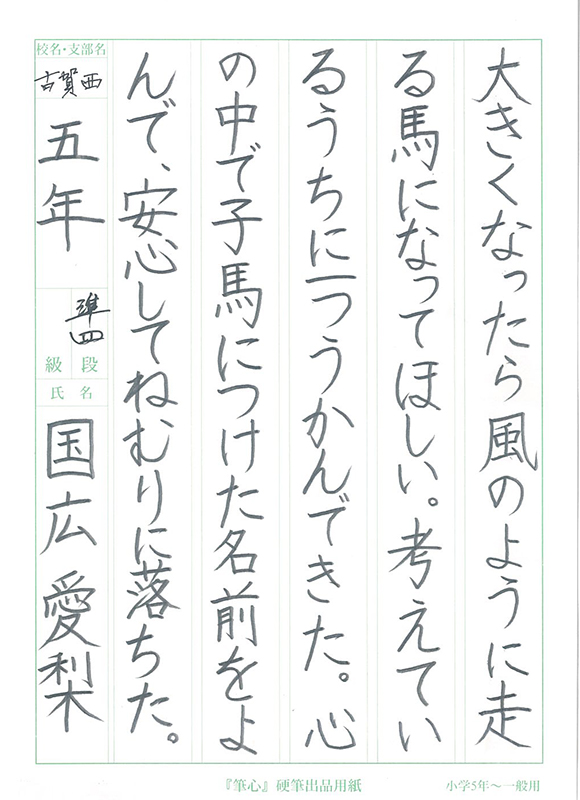 大きくなったら風のように走
る馬になってほしい。考えてい
るうちに一つうかんできた。心
の中で子馬につけた名前をよ
んで、安心してねむりに落ちた。
校名・支部名
古賀西
五年
準四
段
級
氏名
国広愛梨
『筆心』硬筆出品用紙
小学5年～一般用